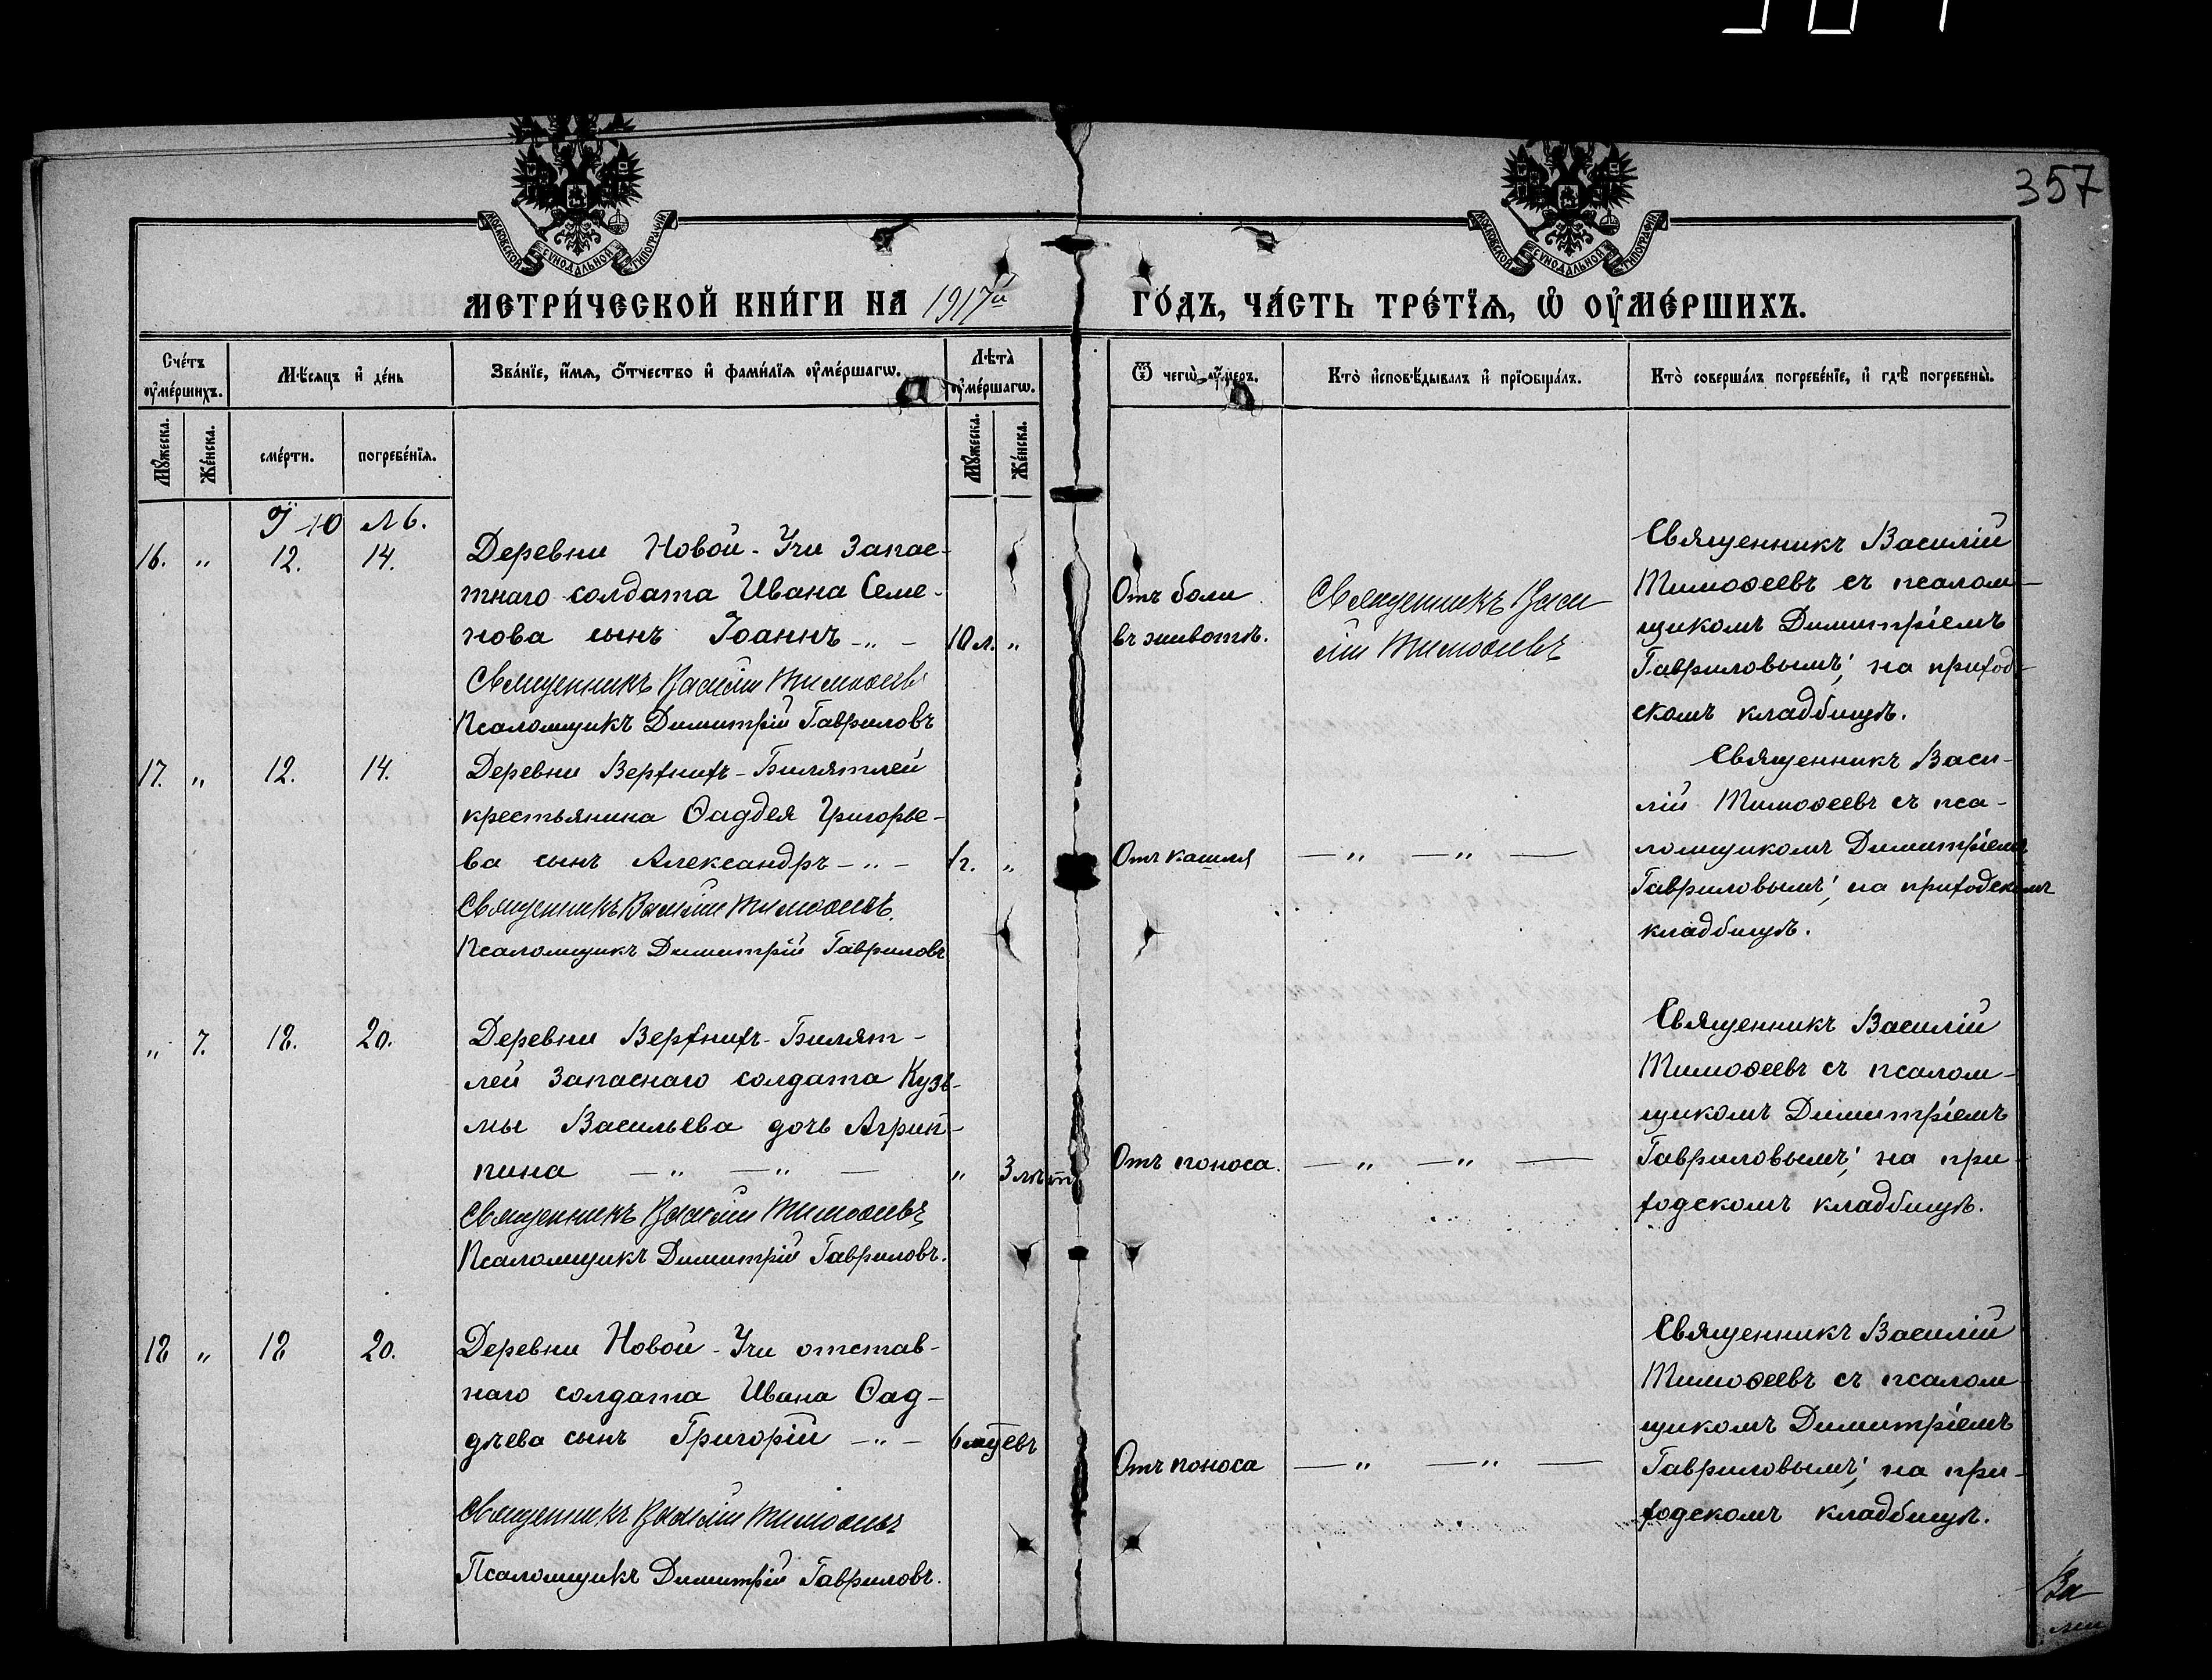 357
МОСКОВСКОЙ СѴНОДАЛЬНОЙ ТИПОГРАФІИ
МОСКОВСКОЙ СѴНОДАЛЬНОЙ ТИПОГРАФІИ
МЕТРИ́ЧЕСКОЙ КНИ́ГИ НА 1917й ГО́ДЪ, ЧА́СТЬ ТРЕ́ТЇѦ, Ѡ҆ ОУ҆МЕ́РШИХЪ.
Сче́тъ
оу҆ме́ршихъ.
Мѣ́сяцъ и҆ де́нь
Зва́нїе, и҆́мѧ, ѻ҆́тчество и҆ фами́лїѧ оу҆ме́ршагѡ.
Лѣта̀
оу҆ме́ршагѡ.
Ѿ чегѡ̀ оу҆́меръ.
Кто̀ и҆сповѣ́дывалъ и҆ прїѻбща́лъ.
Кто̀ соверша́лъ погребе́нїе, и҆ гдѣ̀ погребены̀.
Мꙋ́жеска.
Же́нска.
сме́рти.
погребе́нїѧ.
Мꙋ́жеска.
Же́нска.
Іюль.
16. „ 12. 14.
Деревни Новой-Учи запас-
тнаго солдата Ивана Семе-
нова сынъ Іоаннъ —„—
10 л. „
Священникъ Василій Тимоѳеевъ
Псаломщикъ Димитрій Гавриловъ
Отъ боли
въ животѣ.
Священникъ Васи
лій Тимоѳеевъ
Священникъ Василій
Тимоѳеевъ съ псалом-
щикомъ Димитріемъ
Гавриловымъ; на приход-
скомъ кладбищѣ.
17. „ 12. 14.
Деревни Верхнихъ-Билятлей
крестьянина Ѳаддея Григорье-
ва сынъ Александръ —„—
1 г. „
Священникъ Василій Тимоѳеевъ.
Псаломщикъ Димитрій Гавриловъ
Отъ кашля
— „ — „ —
Священникъ Васи-
лій Тимоѳеевъ съ пса-
ломщикомъ Димитріемъ
Гавриловымъ; на приходскомъ
кладбищѣ.
„ 7. 18. 20.
Деревни Верхнихъ-Билят-
лей запаснаго солдата Кузь-
мы Васильева дочь Агрип-
пина — „ — „ —
„ 3 лѣтъ
Священникъ Василій Тимоѳеевъ
Псаломщикъ Димитрій Гавриловъ.
Отъ поноса.
— „ — „ —
Священникъ Василій
Тимоѳеевъ съ псалом-
щикомъ Димитріемъ
Гавриловымъ; на при-
ходскомъ кладбищѣ.
18 „ 18 20.
Деревни Новой-Учи отстав-
наго солдата Ивана Ѳад-
дѣева сынъ Григорій —„—
Священникъ Василій Тимоѳеевъ
Псаломщикъ Димитрій Гавриловъ.
Отъ поноса
— „ — „ —
Священникъ Василій
Тимоѳеевъ съ псалом-
щикомъ Димитріемъ
Гавриловымъ; на при-
ходскомъ кладбищѣ.